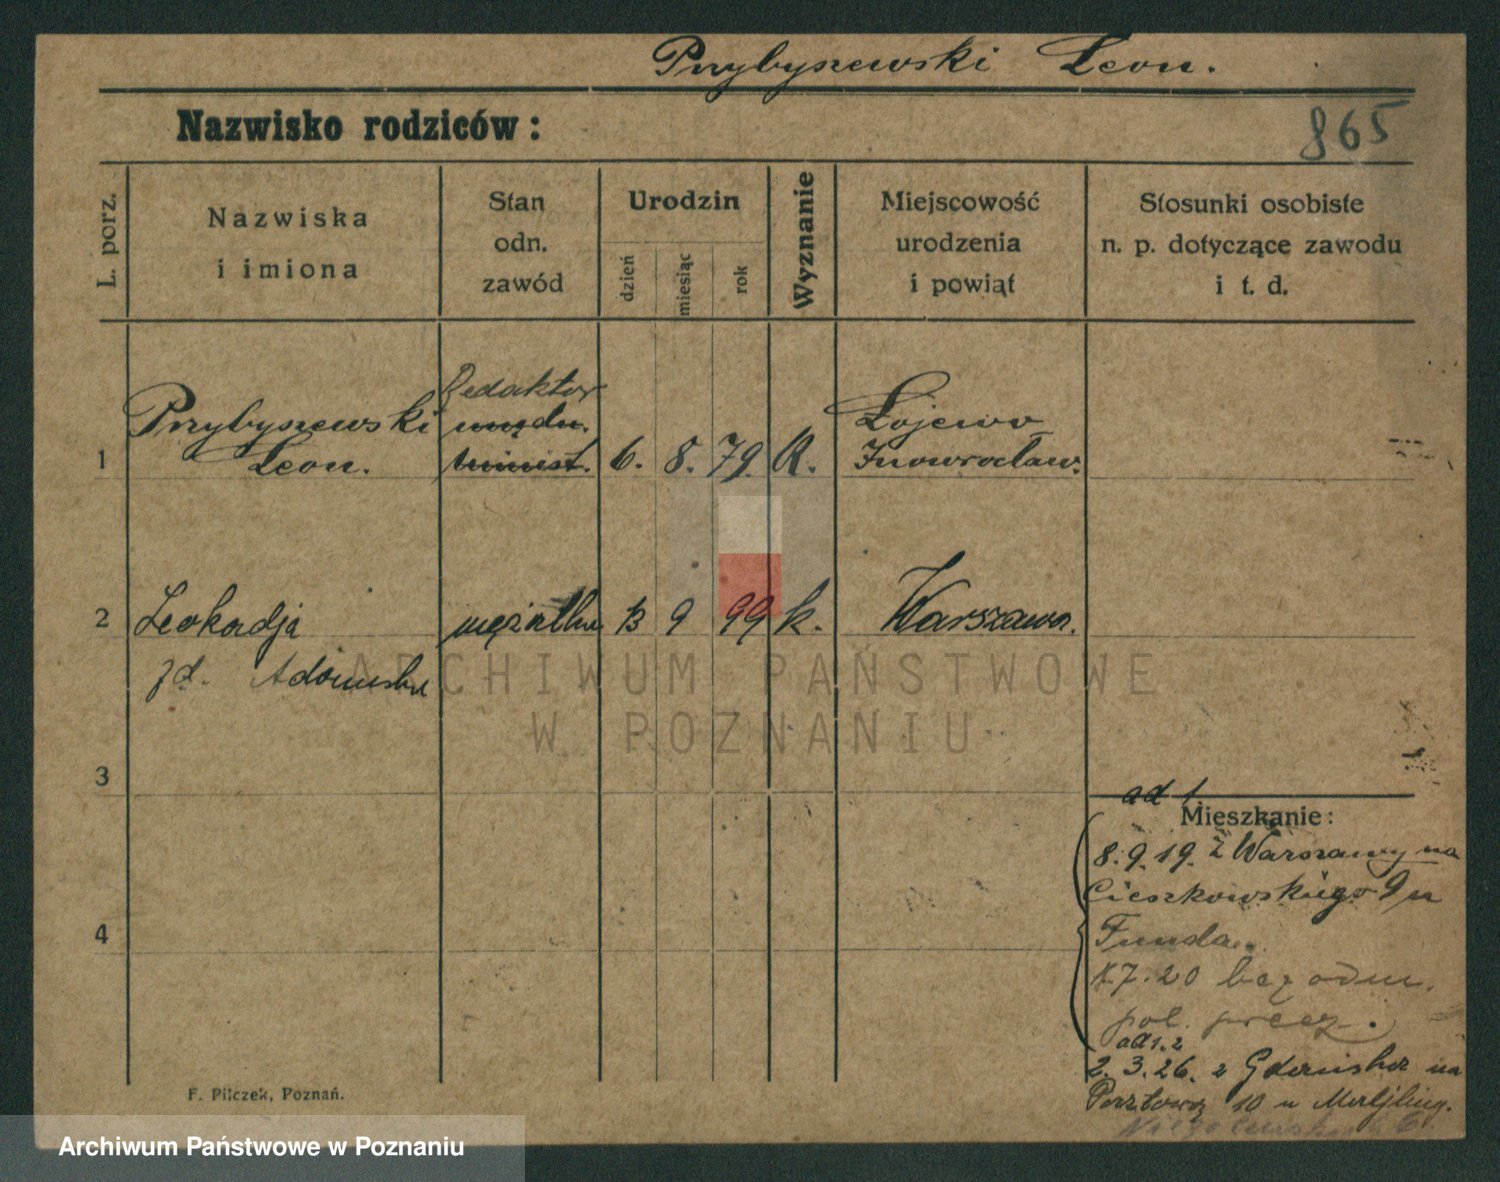 Przybyszewski Leon.
865
Nazwisko rodziców :
L. porz.
Nazwiska
i imiona
Stan
odn.
zawód
Urodzin
dzień
miesiąc
rok
Wyznanie
Miejscowość
urodzenia
i powiąt
Stosunki osobiste
n. p. dotyczące zawodu
i t. d.
1
Przybyszewski
Leon.
Redaktor
6. 8. 79. K.
Łojewo
Inowrocław.
2
Leokadja
zd. Adamska
mężatka
13 9 99 k.
Warszawa.
ARCHIWUM PAŃSTWOWE
W POZNANIU
3
4
ad 1
Mieszkanie :
8.9.19. z Warszawy na
Cieszkowskiego 9 u
Funda..
7.20 bez odm.
pol. precz.
ad 1. 2
2. 3. 26. z Gdańska na
Pocztową 10 u
F. Pilczek, Poznań.
Archiwum Państwowe w Poznaniu